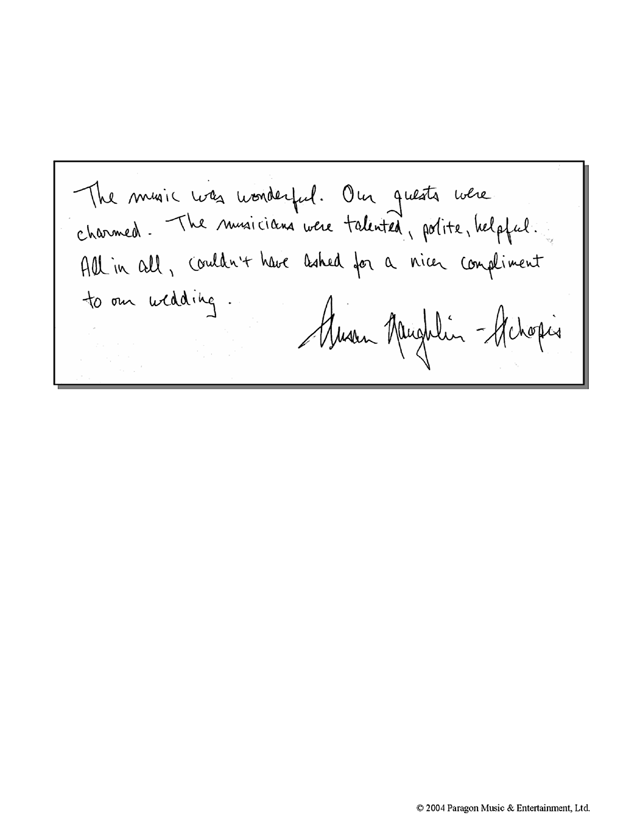 The music was wonderful. Our guests were
charmed. The musicians were talented, polite, helpful.
All in all, couldn't have asked for a nicer compliment
to our wedding.
Susan
© 2004 Paragon Music & Entertainment, Ltd.